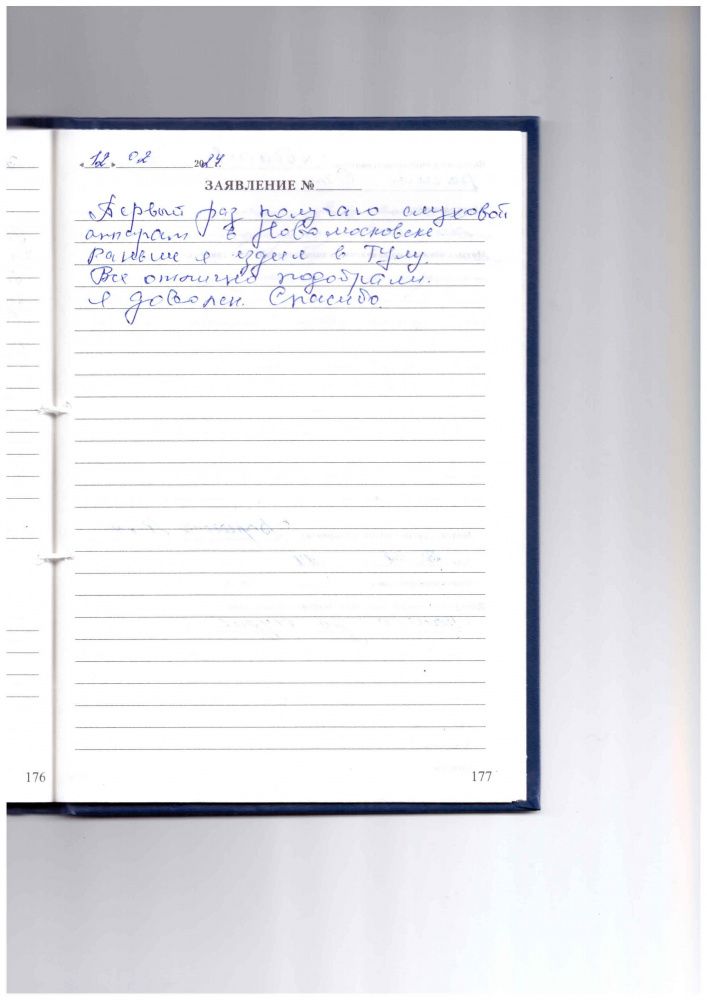 «12» 02 2024
ЗАЯВЛЕНИЕ №
Первый раз получаю слуховой
аппарат в Новомосковске
Раньше я ездил в Тулу.
Все отлично подобрали.
Я доволен. Спасибо.
176
177